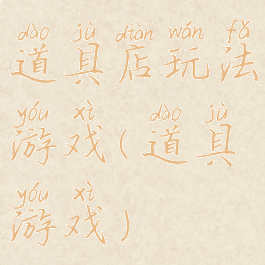 dào jù diàn wán fǎ
道具店玩法
yóu xì dào jù
游戏(道具
yóu xì
游戏)